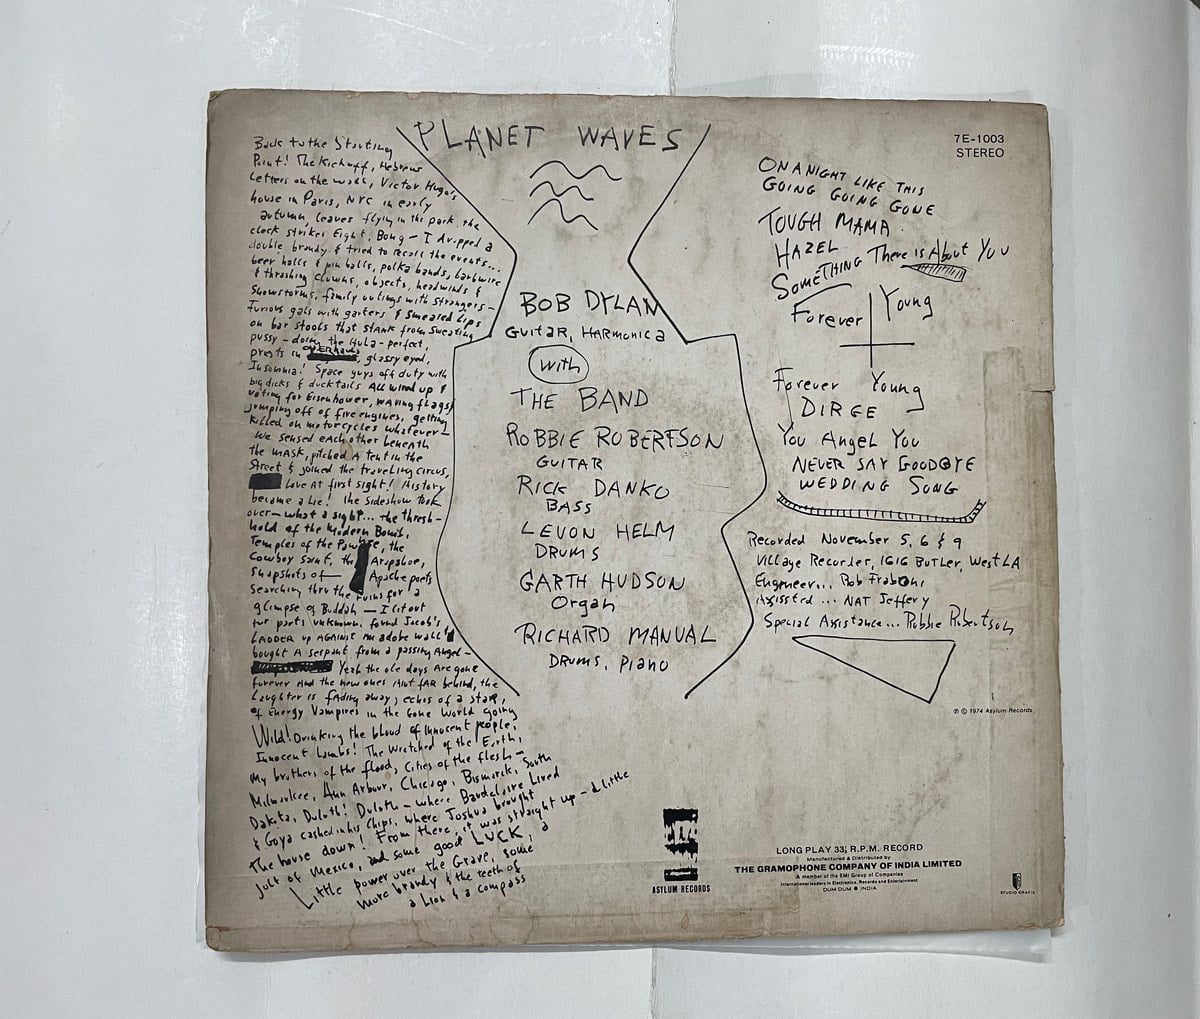 PLANET WAVES
Back to the Starting
Point! The Kickoff, Hebrew
Letters on the wall, Victor Hugo's
house in Paris, NYC in early
autumn, leaves flying in the park, the
clock strikes Eight, Bong - I dropped a
double brandy & tried to recall the events...
beer halls & pin balls, polka bands, barbwire
& thrashing clowns, objects, headwinds &
snowstorms, family outings with strangers -
Furious gals with garters & smeared lips
on bar stools that stank from sweating
pussy - doing the Hula - perfect,
priests in overhauls, glassy eyed,
Insomnia! Space guys off duty with
big dicks & ducktails All wired up &
voting for Eisenhower, waving flags &
jumping off of fire engines, getting
killed on motorcycles whatever -
We sensed each other beneath
the mask, pitched a tent in the
Street & joined the traveling circus,
Love at first sight! History
became a Lie! the sideshow took
over - what a sight... the thresh-
hold of the Modern Bomb,
Temples of the Pawnee, the
Cowboy Saint, the Arapahoe,
snapshots of Apache poets
searching thru the ruins for a
glimpse of Buddah - I lit out
for parts unknown, found Jacob's
Ladder up against an adobe wall &
bought a serpant from a passing Angel -
Yeah the ole days Are gone
forever And the new ones Aint far behind, the
Laughter is fading away, echos of a star,
of Energy Vampires in the Gone World going
Wild! Drinking the blood of innocent people,
Innocent Lambs! The Wretched of the Earth,
My brothers of the flood, Cities of the flesh -
Milwaukee, Ann Arbour, Chicago, Bismarck, South
Dakota, Duluth! Duluth - where Baudelaire Lived
& Goya cashed in his Chips, where Joshua brought
the house down! From there, it was straight up - a little
jolt of Mexico, and some good LUCK, a
Little power over the Grave, some
more brandy & the teeth of
a Lion & a compass
BOB DYLAN
Guitar, Harmonica
with
THE BAND
ROBBIE ROBERTSON
GUITAR
RICK DANKO
BASS
LEVON HELM
DRUMS
GARTH HUDSON
Organ
RICHARD MANUAL
DRUMS, Piano
7E-1003
STEREO
ON A NIGHT LIKE THIS
GOING GOING GONE
TOUGH MAMA
HAZEL
SOMETHING There is About You
Forever Young
Forever Young
DIRGE
You Angel You
NEVER SAY GOODBYE
WEDDING SONG
Recorded November 5, 6 & 9
Village Recorder, 1616 BUTLER, West LA
Engineer... Rob Fraboni
Assissted ... NAT Jeffery
Special Assistance... Robbie Robertson
℗ © 1974 Asylum Records.
ASYLUM RECORDS
LONG PLAY 33⅓ R.P.M. RECORD
Manufactured & Distributed by
THE GRAMOPHONE COMPANY OF INDIA LIMITED
A member of the EMI Group of Companies
International leaders in Electronics, Records and Entertainment
DUM DUM ● INDIA
STUDIO GRAFIC